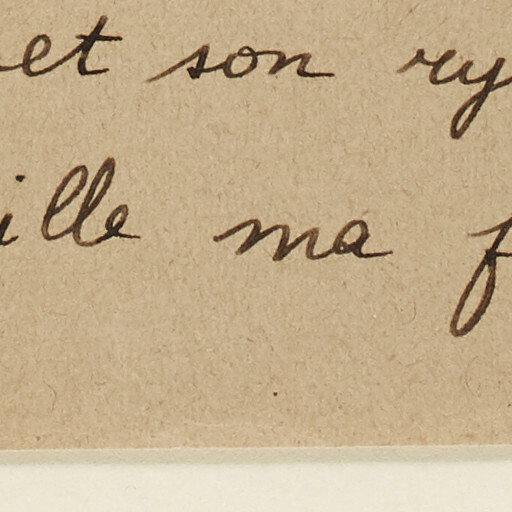 et son ry
ille ma f